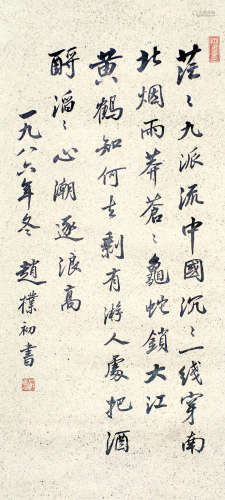 茫〻九派流中國沉〻一线穿南
北烟雨莽蒼〻龜蛇鎖大江
黄鶴知何去剩有游人處把酒
酹滔〻心潮逐浪高
一九八六年冬 趙樸初書